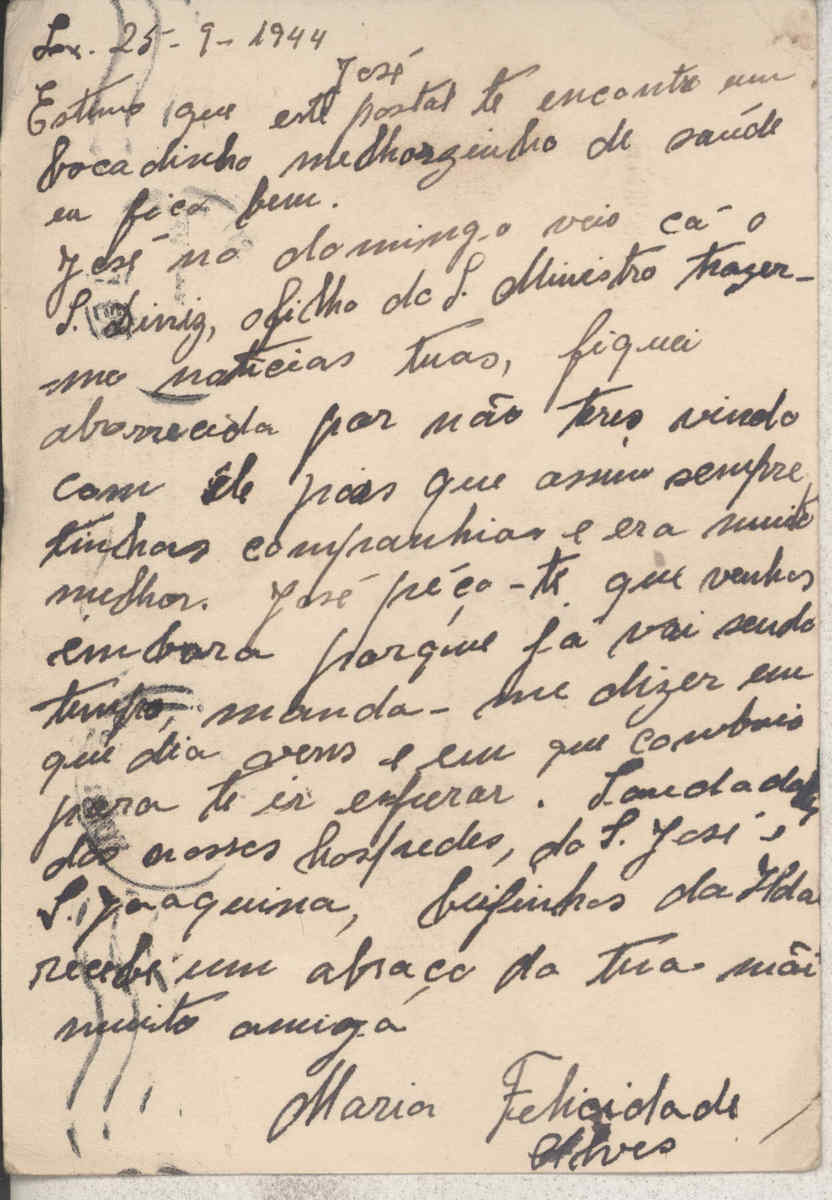 Lx. 25-9-1944
José
Estimo que este postal te encontre um
bocadinho melhorzinho de saúde
eu fico bem.
José no domingo veio cá o
S. Diniz, o filho do S. Ministro trazer-
-me noticias tuas, fiquei
aborrecida por não teres vindo
com ele pois que assim sempre
tinhas companhia e era muito
melhor. José péço-te que venhas
embora porque já vai sendo
tempo, manda-me dizer em
que dia vens e em que comboio
para te ir esperar. Saudades
dos nossos hospedes, do S. José e
S. Joaquina, beijinhos da Ilda
recebe um abraço da tua mãi
muito amiga
Maria Felicidade
Alves